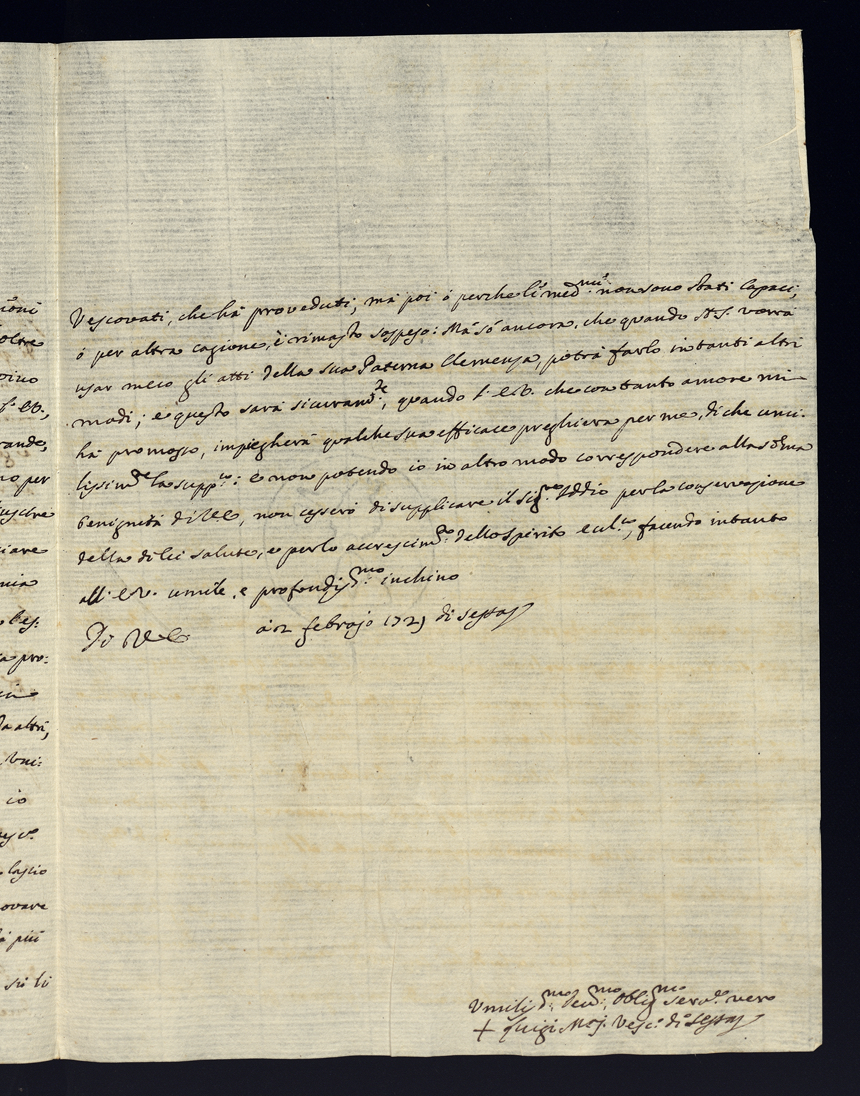 Vescovati, che há proveduti, má poi ó perche li med.mi non sono stati capaci,
ó per altra cagione, é rimasto sospeso: Má só ancora, che quando S. S. vorrá
usar meco gli atti della sua Paterna Clemenza, potrá farlo in tanti altri
modi; e questo sará sicuram.te, quando l' E.V. che con tanto amore mi
há promosso, impiegherá qualche sua efficace preghiera per me, di che umi-
lissim.te la supp.co: e non potendo io in altro modo correspondere alla soma
benignitá di V.E., non cesseró di supplicare il sig.re Iddio per la conservazione
della di lei salute, e per lo accrescim.to dello spirito e facendo intanto
all' E.V. umile, e profondiss.mo inchino
Di V.E. á 12 febrajo 1729 di Sessa
Umiliss.mo Dev.mo Oblig.mo Serv.re vero
+ Luigi M.a Vesc.o di Sessa
ioni
oltre
l' E.V.,
rande,
no per
ciare
nia
a pro:
a altri,
io
lascio
ovare
á più
sú li